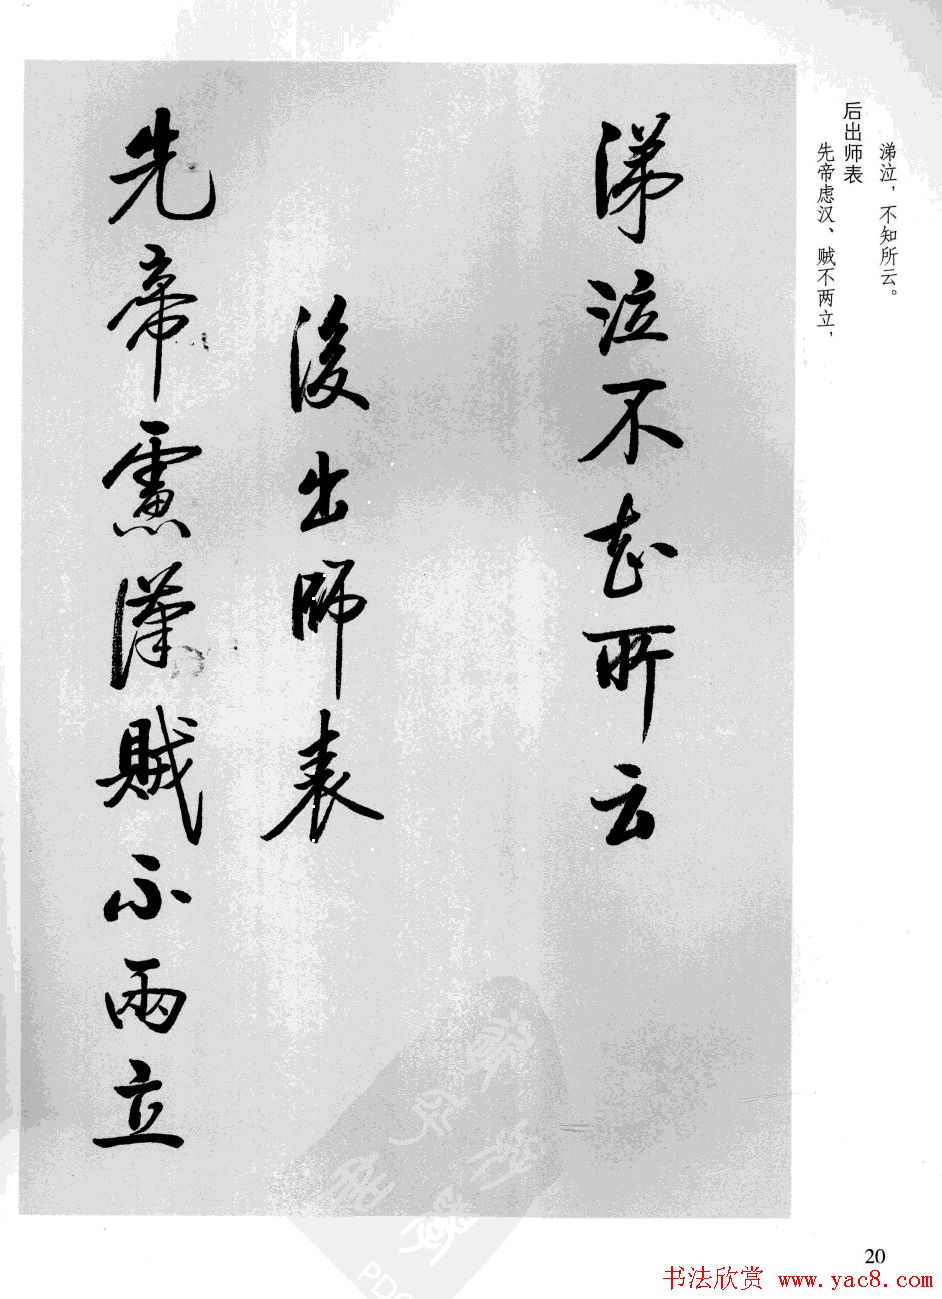 涕泣，不知所云。
后出师表
先帝虑汉、贼不两立，
涕泣不知所云
後出師表
先帝慮漢賊不兩立
20
书法欣赏 www.yac8.com